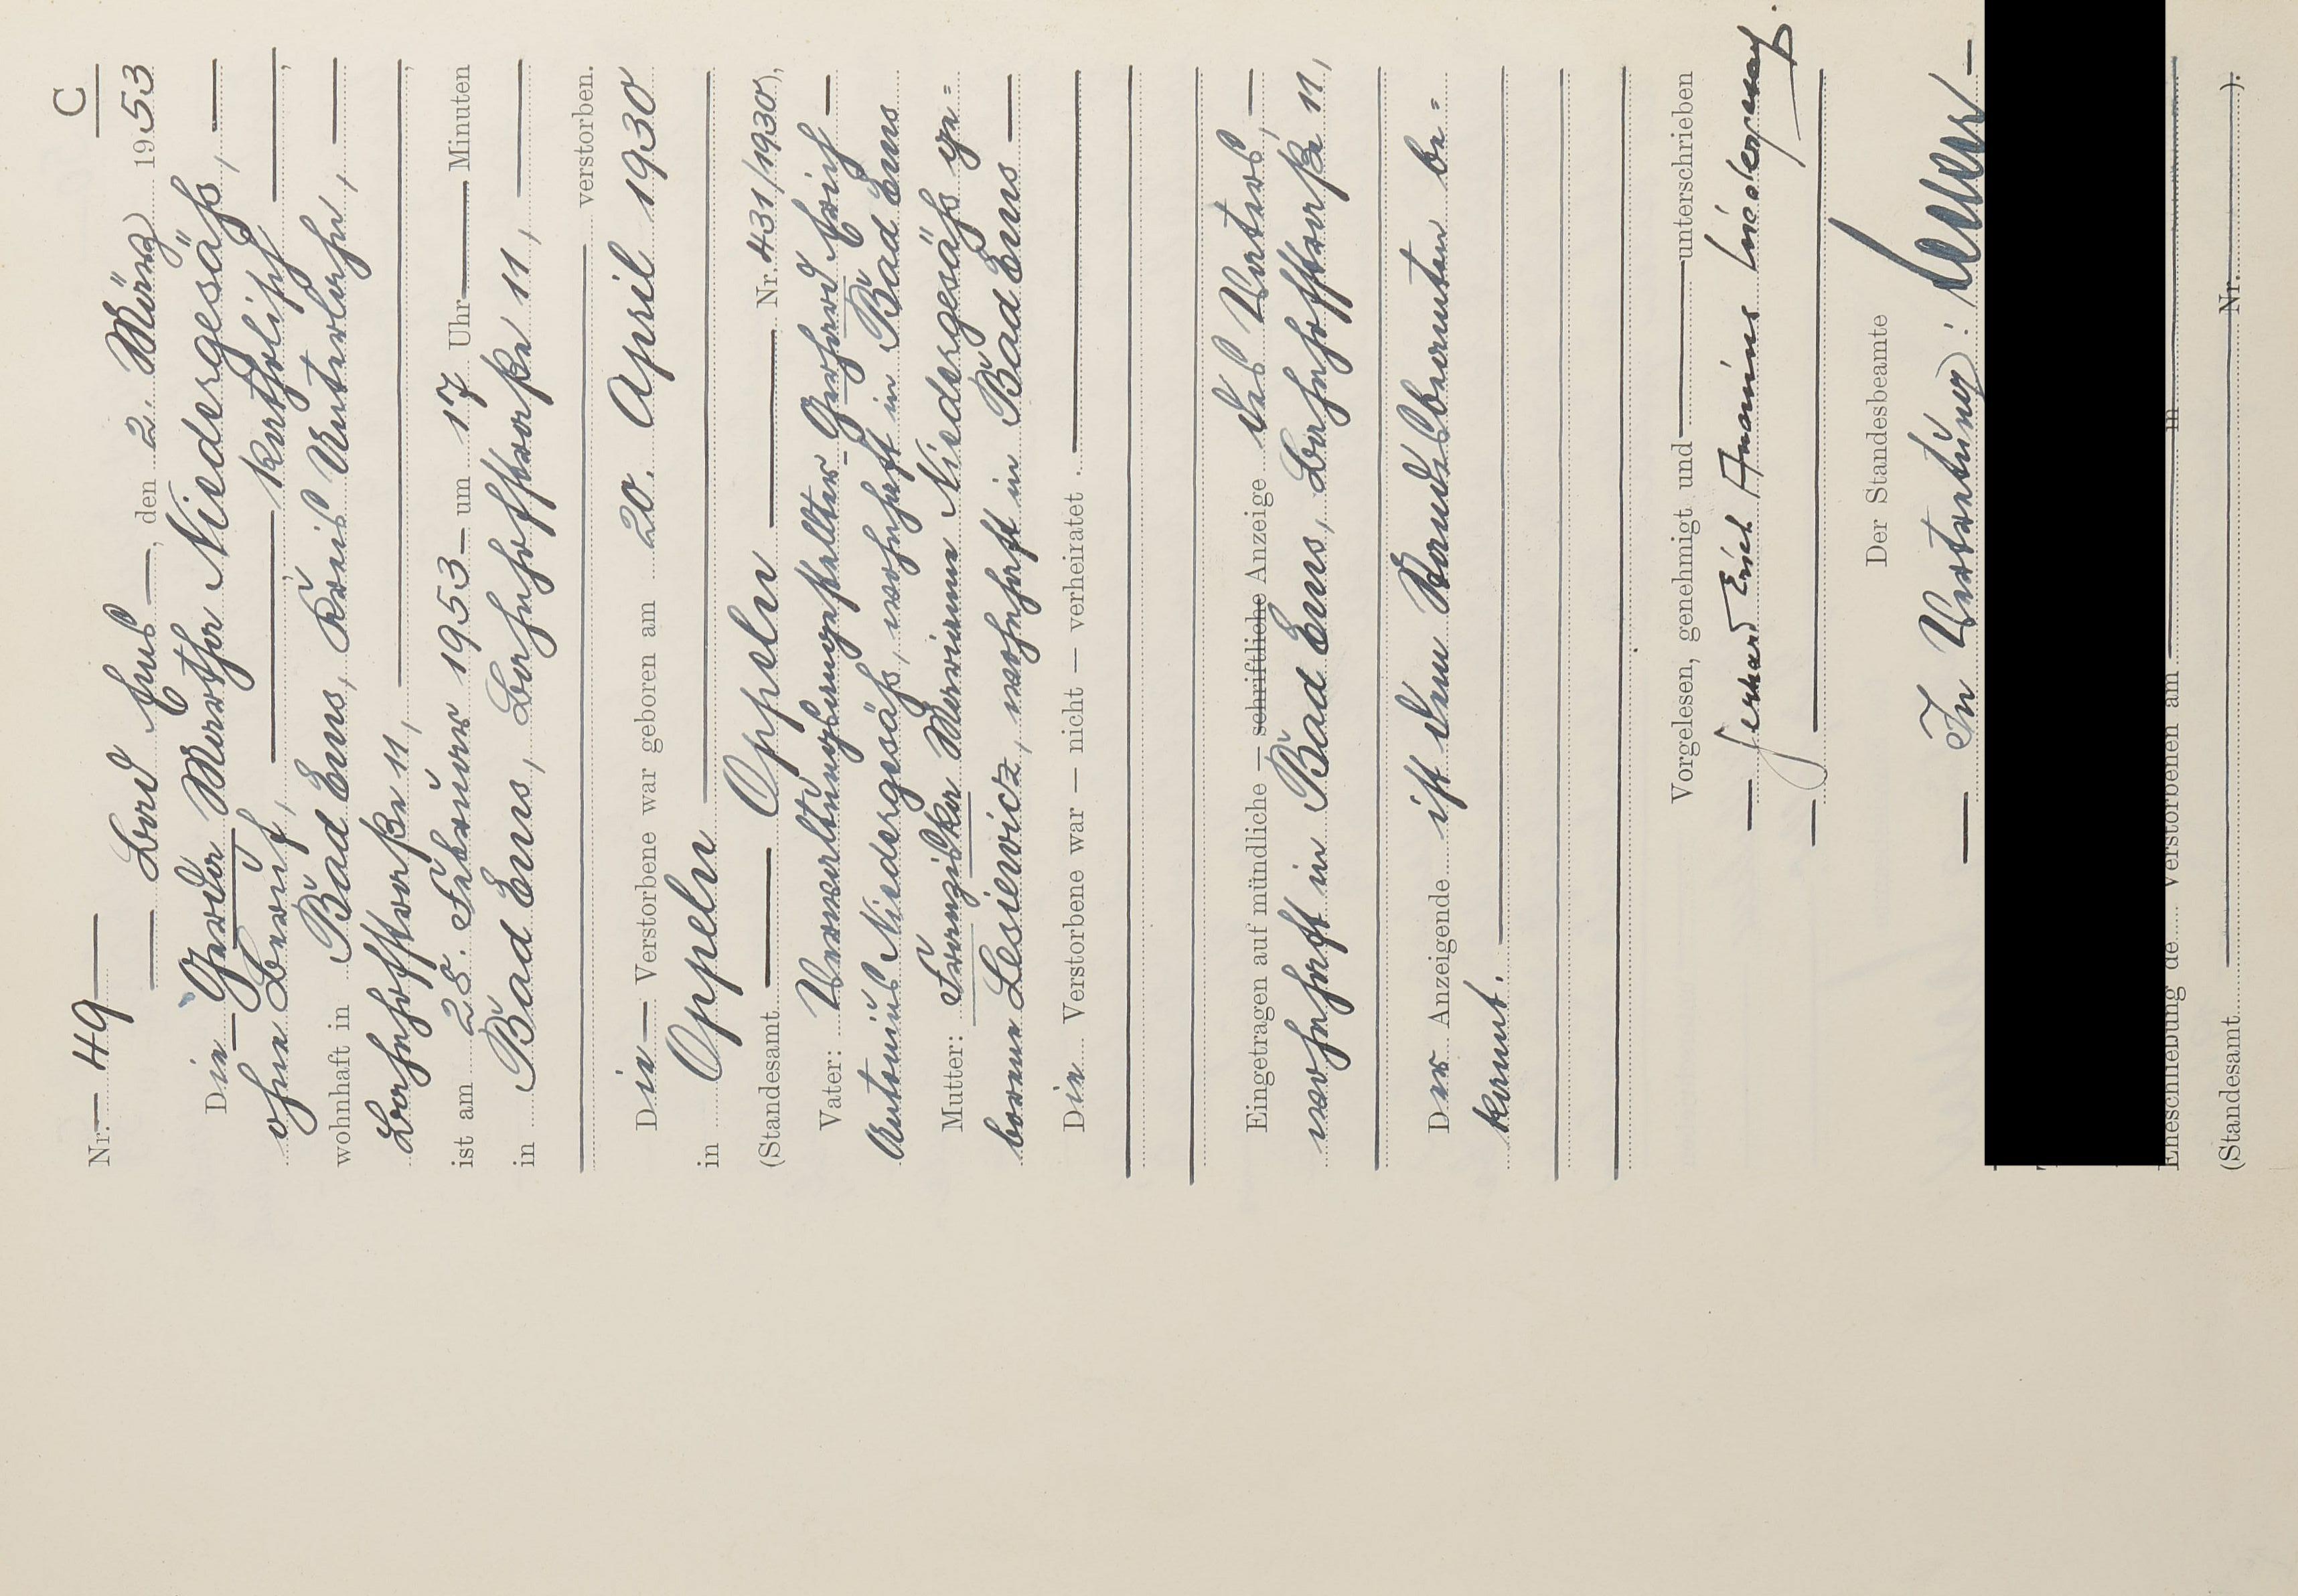 C
Nr. 49
Bad Ems, den 2. März 1953
Die Gerda Martha Niedergesäß,
ohne Beruf, katholisch,
wohnhaft in Bad Ems, Kreis Unterlahn,
Bahnhofstraße 11,
ist am 28. Februar 1953 um 17 Uhr Minuten
in Bad Ems, Bahnhofstraße 11,
verstorben.
Die Verstorbene war geboren am 20. April 1930
in Oppeln
(Standesamt Oppeln Nr. 431/1930),
Vater: Verwaltungsangestellter Gerhard Erich
Antonius Niedergesäß, wohnhaft in Bad Ems
Mutter: Franziska Marianna Niedergesäß ge=
borene Lesiewicz, wohnhaft in Bad Ems
Die Verstorbene war — nicht — verheiratet.
Eingetragen auf mündliche — schriftliche Anzeige des Vaters,
wohnhaft in Bad Ems, Bahnhofstraße 11,
Der Anzeigende ist dem Standesbeamten be=
kannt.
Vorgelesen, genehmigt und unterschrieben
Gerhard Erich Antonius Niedergesäß.
Der Standesbeamte
In Vertretung:
Eheschließung de Verstorbenen am in
(Standesamt Nr. ).